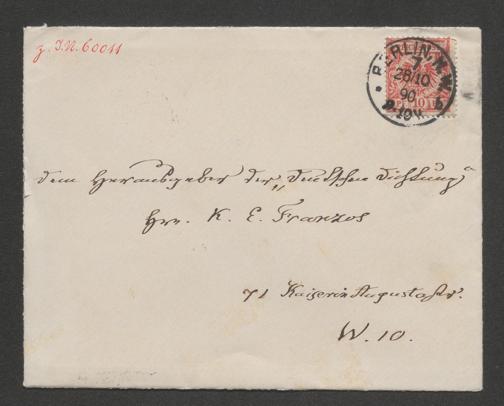 z. I.N. 60011
BERLIN, N.W.
7
28/10
90
9-10V.
b
dem Herausgeber der „Deutschen Dichtung“
Hrr. K. E. Franzos
71 Kaiserin Augustastr.
W. 10.